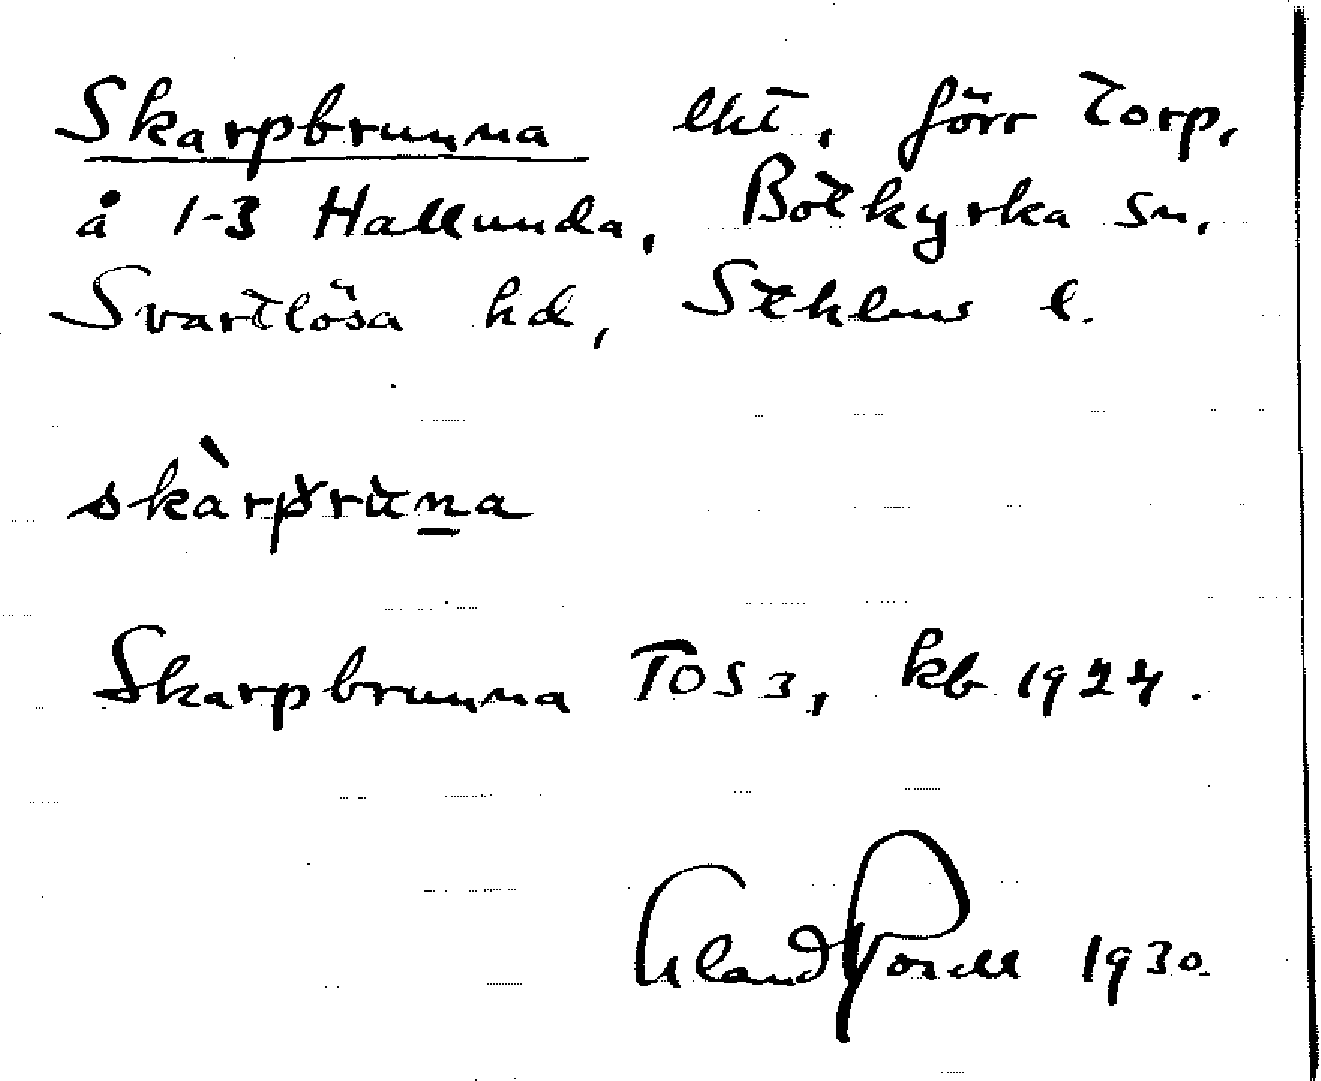 Skarpbrunna lht, förr torp,
å 1-3 Hallunda, Botkyrka sn,
Svartlösa hd, Sthlms l.
Skarpbrunna TOS3, kb 1924.
1930.